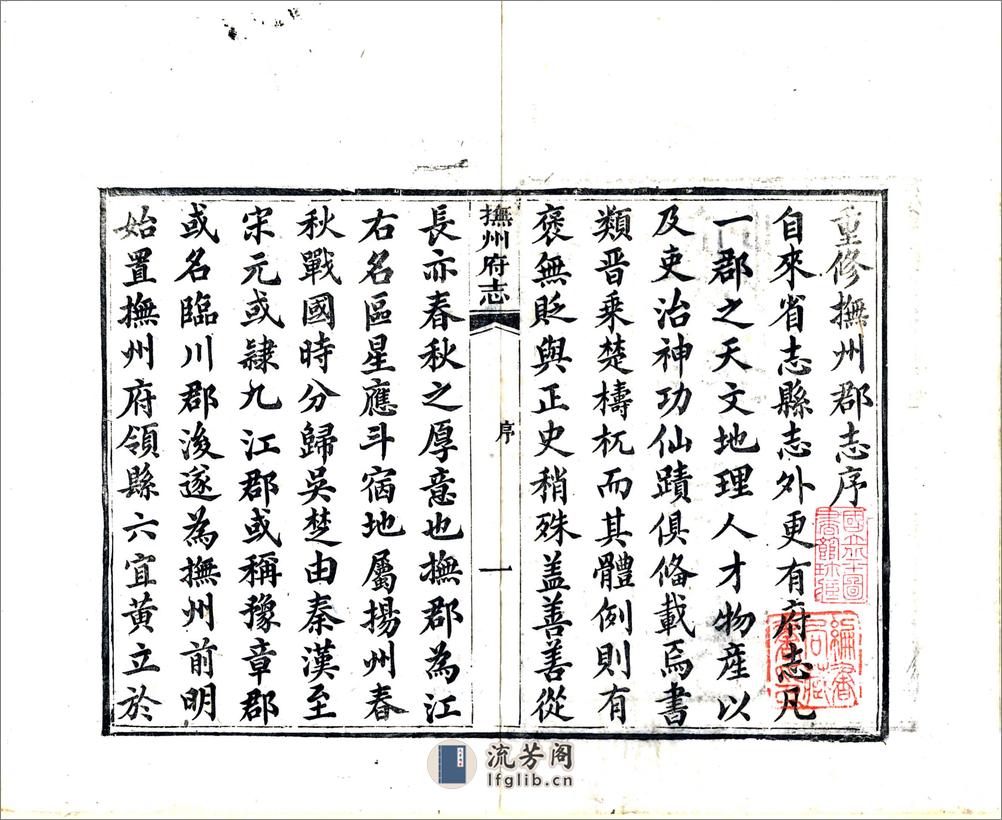 重修撫州郡志序
自來省志縣志外更有府志凡
一郡之天文地理人才物產以
及吏治神功仙蹟俱俻載焉書
類晉乗楚檮杌而其體例則有
褒無貶與正史稍殊蓋善善從
撫州府志
序
一
長亦春秋之厚意也撫郡為江
右名區星應斗宿地屬揚州春
秋戰國時分歸吳楚由秦漢至
宋元或隸九江郡或稱豫章郡
或名臨川郡後遂為撫州前明
始置撫州府領縣六宜黃立於
流芳阁
lfglib.cn